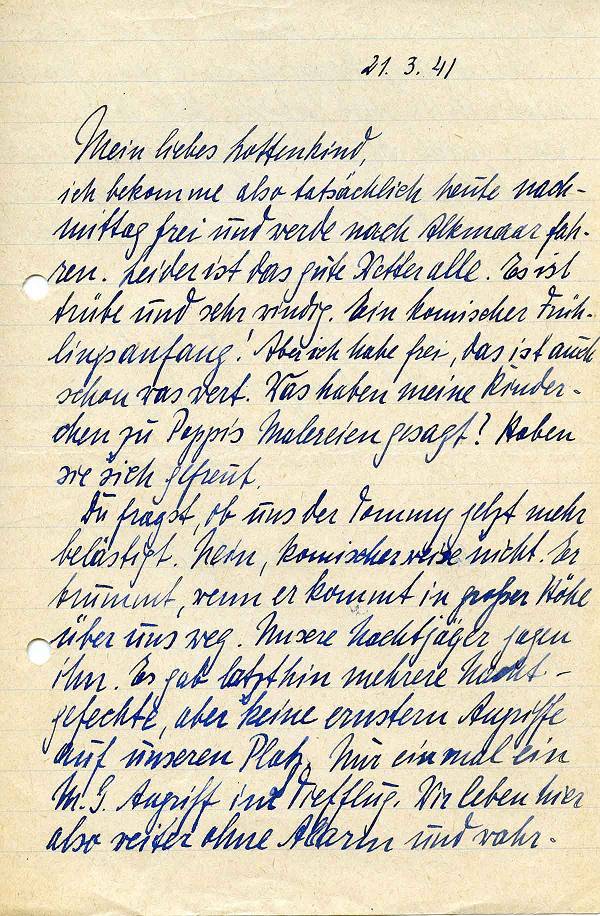 21. 3. 41
Mein liebes Lottenkind,
ich bekomme also tatsächlich heute nach-
mittag frei und werde nach Alkmaar fah-
ren. Leider ist das gute Wetter alle. Es ist
trübe und sehr windig. Ein komischer Früh-
lingsanfang! Aber ich habe frei, das ist auch
schon was wert. Was haben meine Kinder-
chen zu Pappis Malereien gesagt? Haben
sie sich gefreut.
Du fragst, ob uns der Tommy jetzt mehr
belästigt. Nein, komischerweise nicht. Er
brummt, wenn er kommt in großer Höhe
über uns weg. Unsere Nachtjäger jagen
ihn. Es gab letzthin mehrere Nacht-
gefechte, aber keine ernstern Angriffe
auf unseren Platz. Nur einmal ein
M.G. Angriff im Tiefflug. Wir leben hier
also weiter ohne Alarm und wahr-